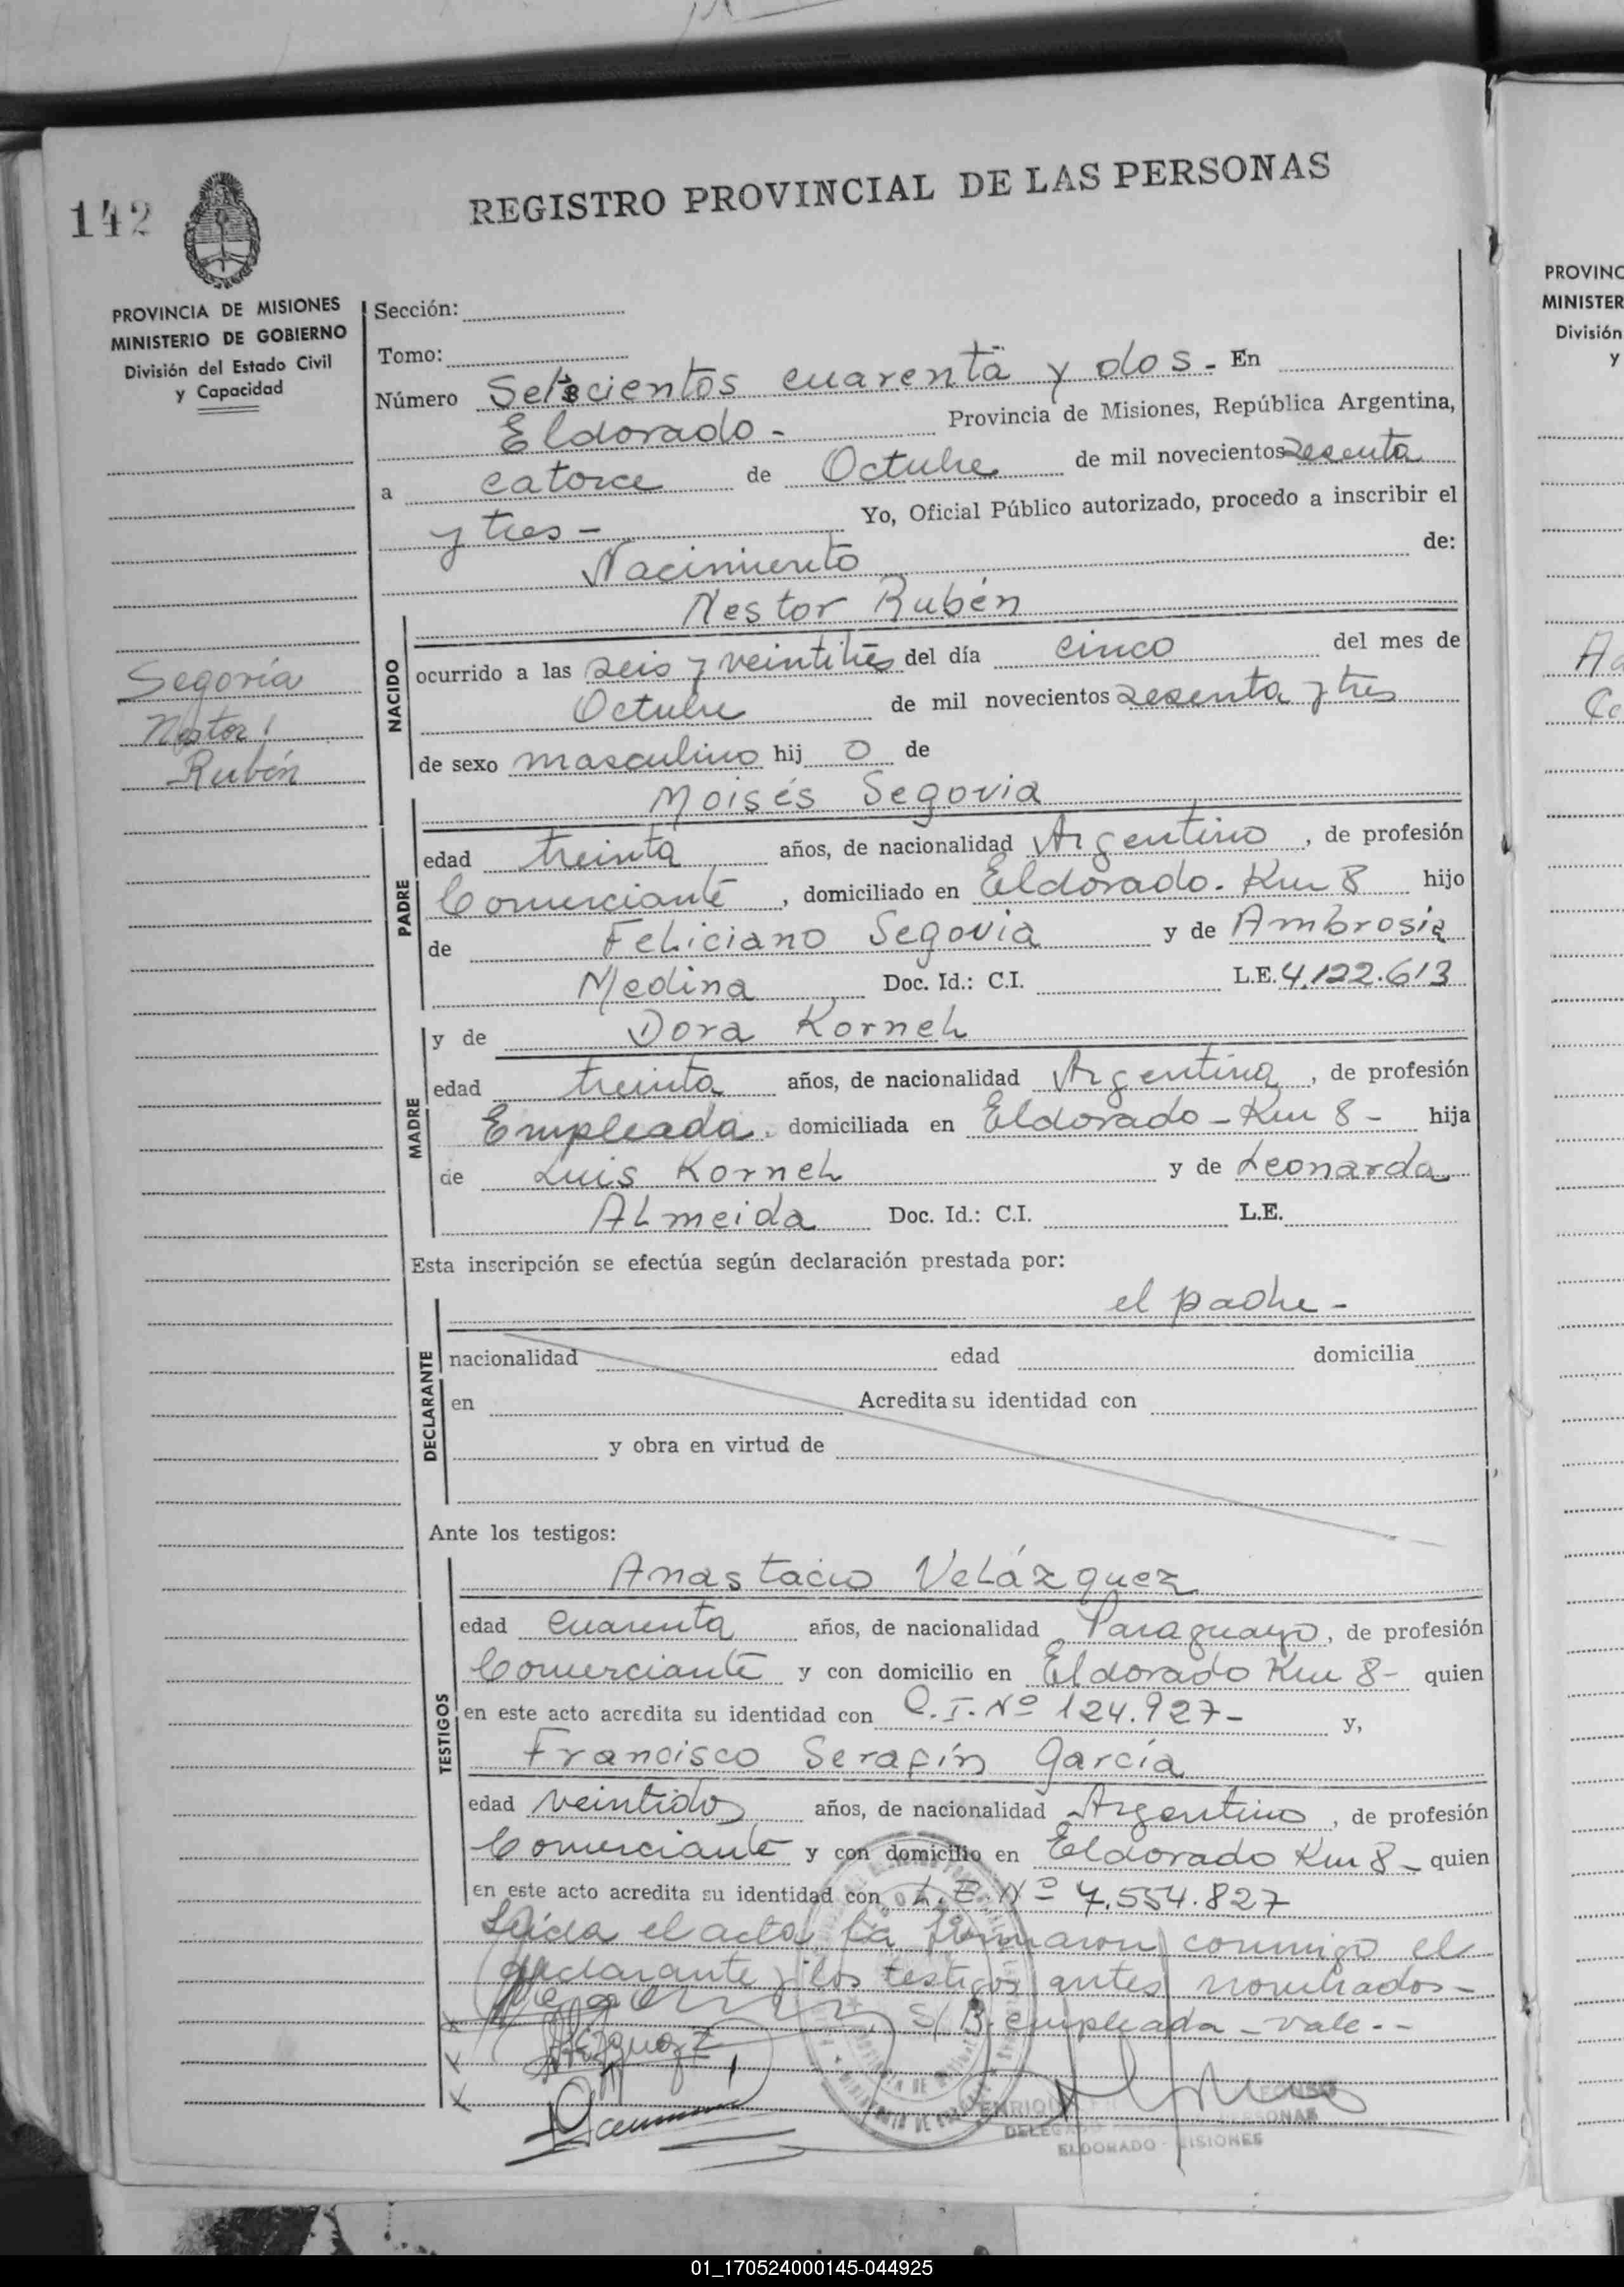 142
REGISTRO PROVINCIAL DE LAS PERSONAS
PROVINCIA DE MISIONES
MINISTERIO DE GOBIERNO
División del Estado Civil
y Capacidad
Sección:
Tomo:
Número Setecientos cuarenta y dos - En
Eldorado - Provincia de Misiones, República Argentina,
a catorce de Octubre de mil novecientos sesenta
y tres - Yo, Oficial Público autorizado, procedo a inscribir el
Nacimiento de:
NACIDO
Nestor Rubén
ocurrido a las seis y veintitrés del día cinco del mes de
Octubre de mil novecientos sesenta y tres
de sexo masculino hij o de
Segovia
Nestor
Rubén
PADRE
Moisés Segovia
edad treinta años, de nacionalidad Argentino, de profesión
Comerciante, domiciliado en Eldorado. Km 8 hijo
de Feliciano Segovia y de Ambrosia
Medina Doc. Id.: C.I. L.E. 4.122.613
MADRE
y de Dora Korneh
edad treinta años, de nacionalidad Argentina, de profesión
Empleada, domiciliada en Eldorado - Km 8 - hija
de Luis Korneh y de Leonarda
Almeida Doc. Id.: C.I. L.E.
Esta inscripción se efectúa según declaración prestada por:
DECLARANTE
el padre -
nacionalidad edad domicilia
en Acredita su identidad con
y obra en virtud de
Ante los testigos:
TESTIGOS
Anastacio Velázquez
edad cuarenta años, de nacionalidad Paraguayo, de profesión
Comerciante y con domicilio en Eldorado Km 8 - quien
en este acto acredita su identidad con C.I. Nº 124.927 - y,
Francisco Serafín García
edad veintidos años, de nacionalidad Argentino, de profesión
Comerciante y con domicilio en Eldorado Km 8 - quien
en este acto acredita su identidad con L.E. Nº 7.554.827
Leída el acta la firmaron conmigo el
declarante y los testigos antes nombrados -
S/B. empleada - vale - -
ELDORADO - MISIONES
PROVINC
MINISTER
División
y
01_170524000145-044925